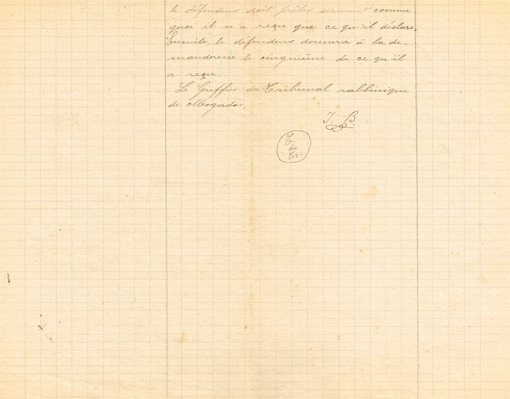 le défendeur doit prêter serment comme
quoi il n'a reçu que ce qu'il déclare.
Ensuite, le défendeur donnera à la de-
manderesse le cinquième de ce qu'il
a reçu.
Le Greffier du Tribunal rabbinique
de Mogador,
J. B.
T.
du